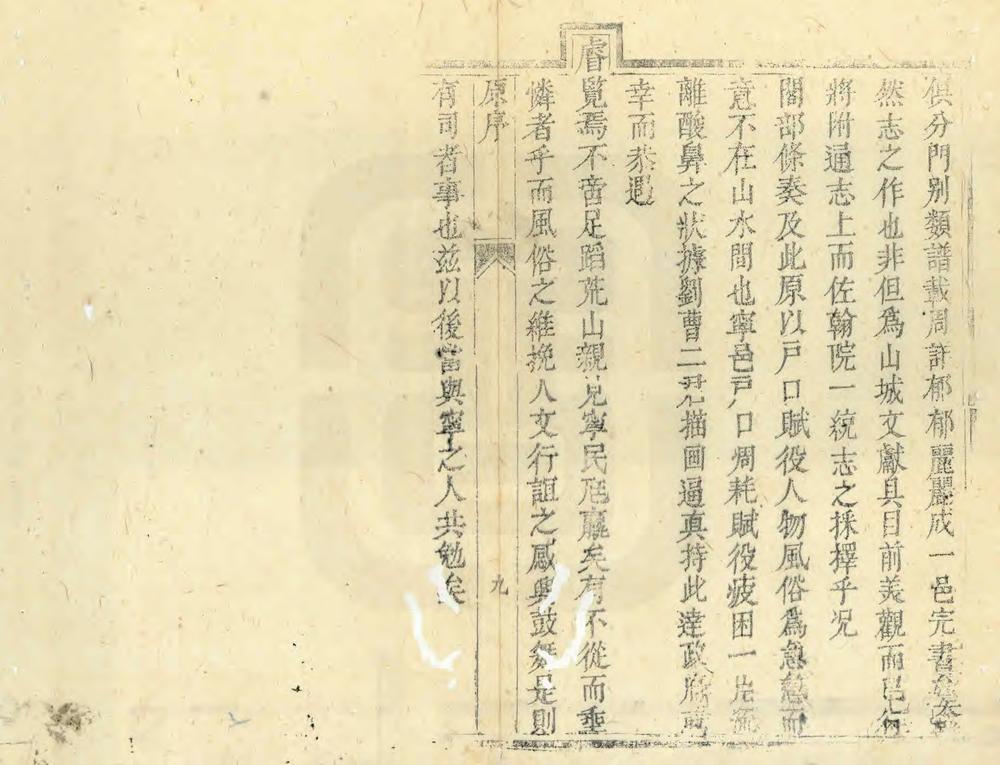 俱分門別類譜載周詳郁郁麗麗成一邑完書
然志之作也非但為山城文獻具目前美觀而已
將附通志上而佐翰院一統志之採擇乎況
閣部條奏及此原以戸口賦役人物風俗為急慾而
意不在山水間也寧邑戸口凋耗賦役疲困一片流
離酸鼻之狀據劉曹二尹描画逼真持此達政府
幸而恭遇
睿覧焉不啻足蹈荒山親見寧民尫羸矣有不從而垂
憐者乎而風俗之維挽人文行誼之感興鼓舞是則
原序
九
有司者事也茲以後當與寧之人共勉矣